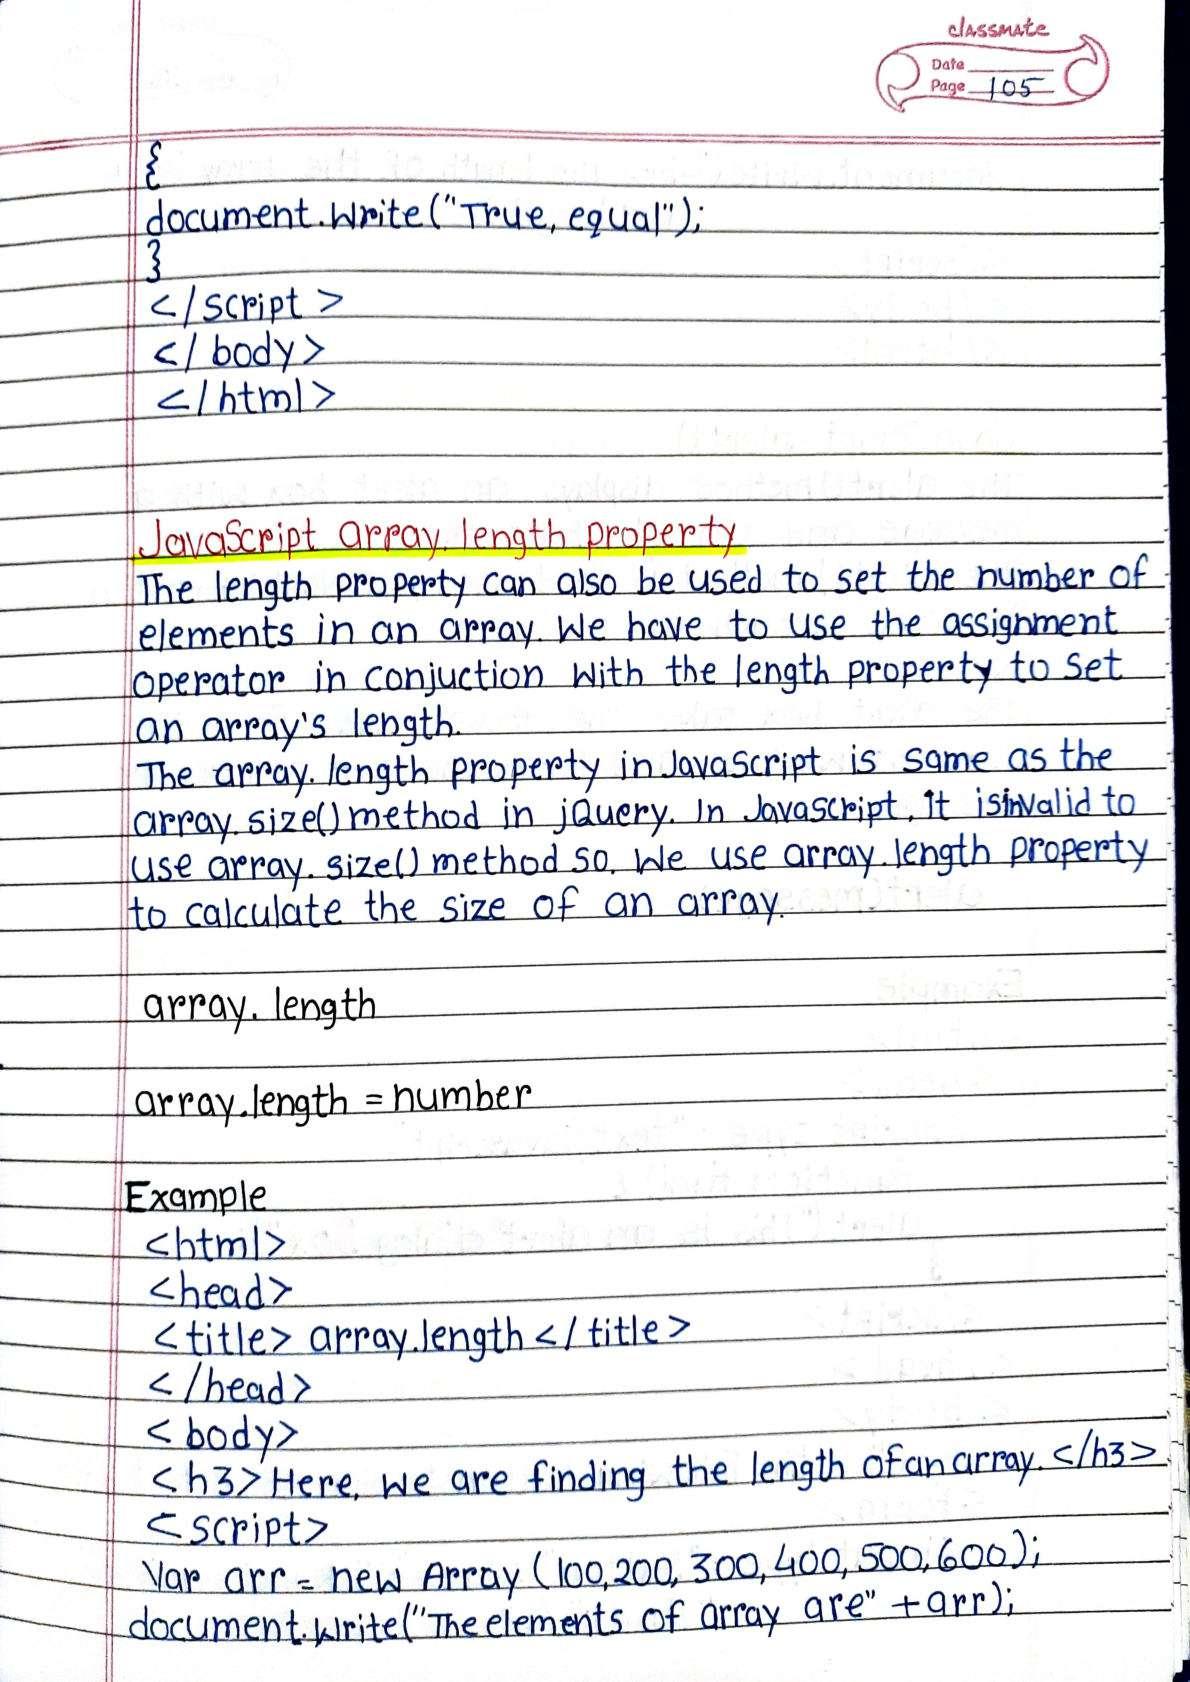 classmate
Date
Page 105
{
document.write("True, equal");
}
</script >
</ body>
</html>
JavaScript array.length property
The length property can also be used to set the number of
elements in an array. We have to use the assignment
operator in conjuction with the length property to set
an array's length.
The array.length property in JavaScript is same as the
array.size() method in jQuery. In Javascript, it isinvalid to
use array.size() method so, we use array.length property
to calculate the size of an array.
array.length
array.length = number
Example
<html>
<head>
<title> array.length </ title>
</head>
<body>
<h3>Here, we are finding the length of an array.</h3>
<script>
Var arr = new Array (100,200,300,400,500,600);
document.write("The elements of array are" +arr);